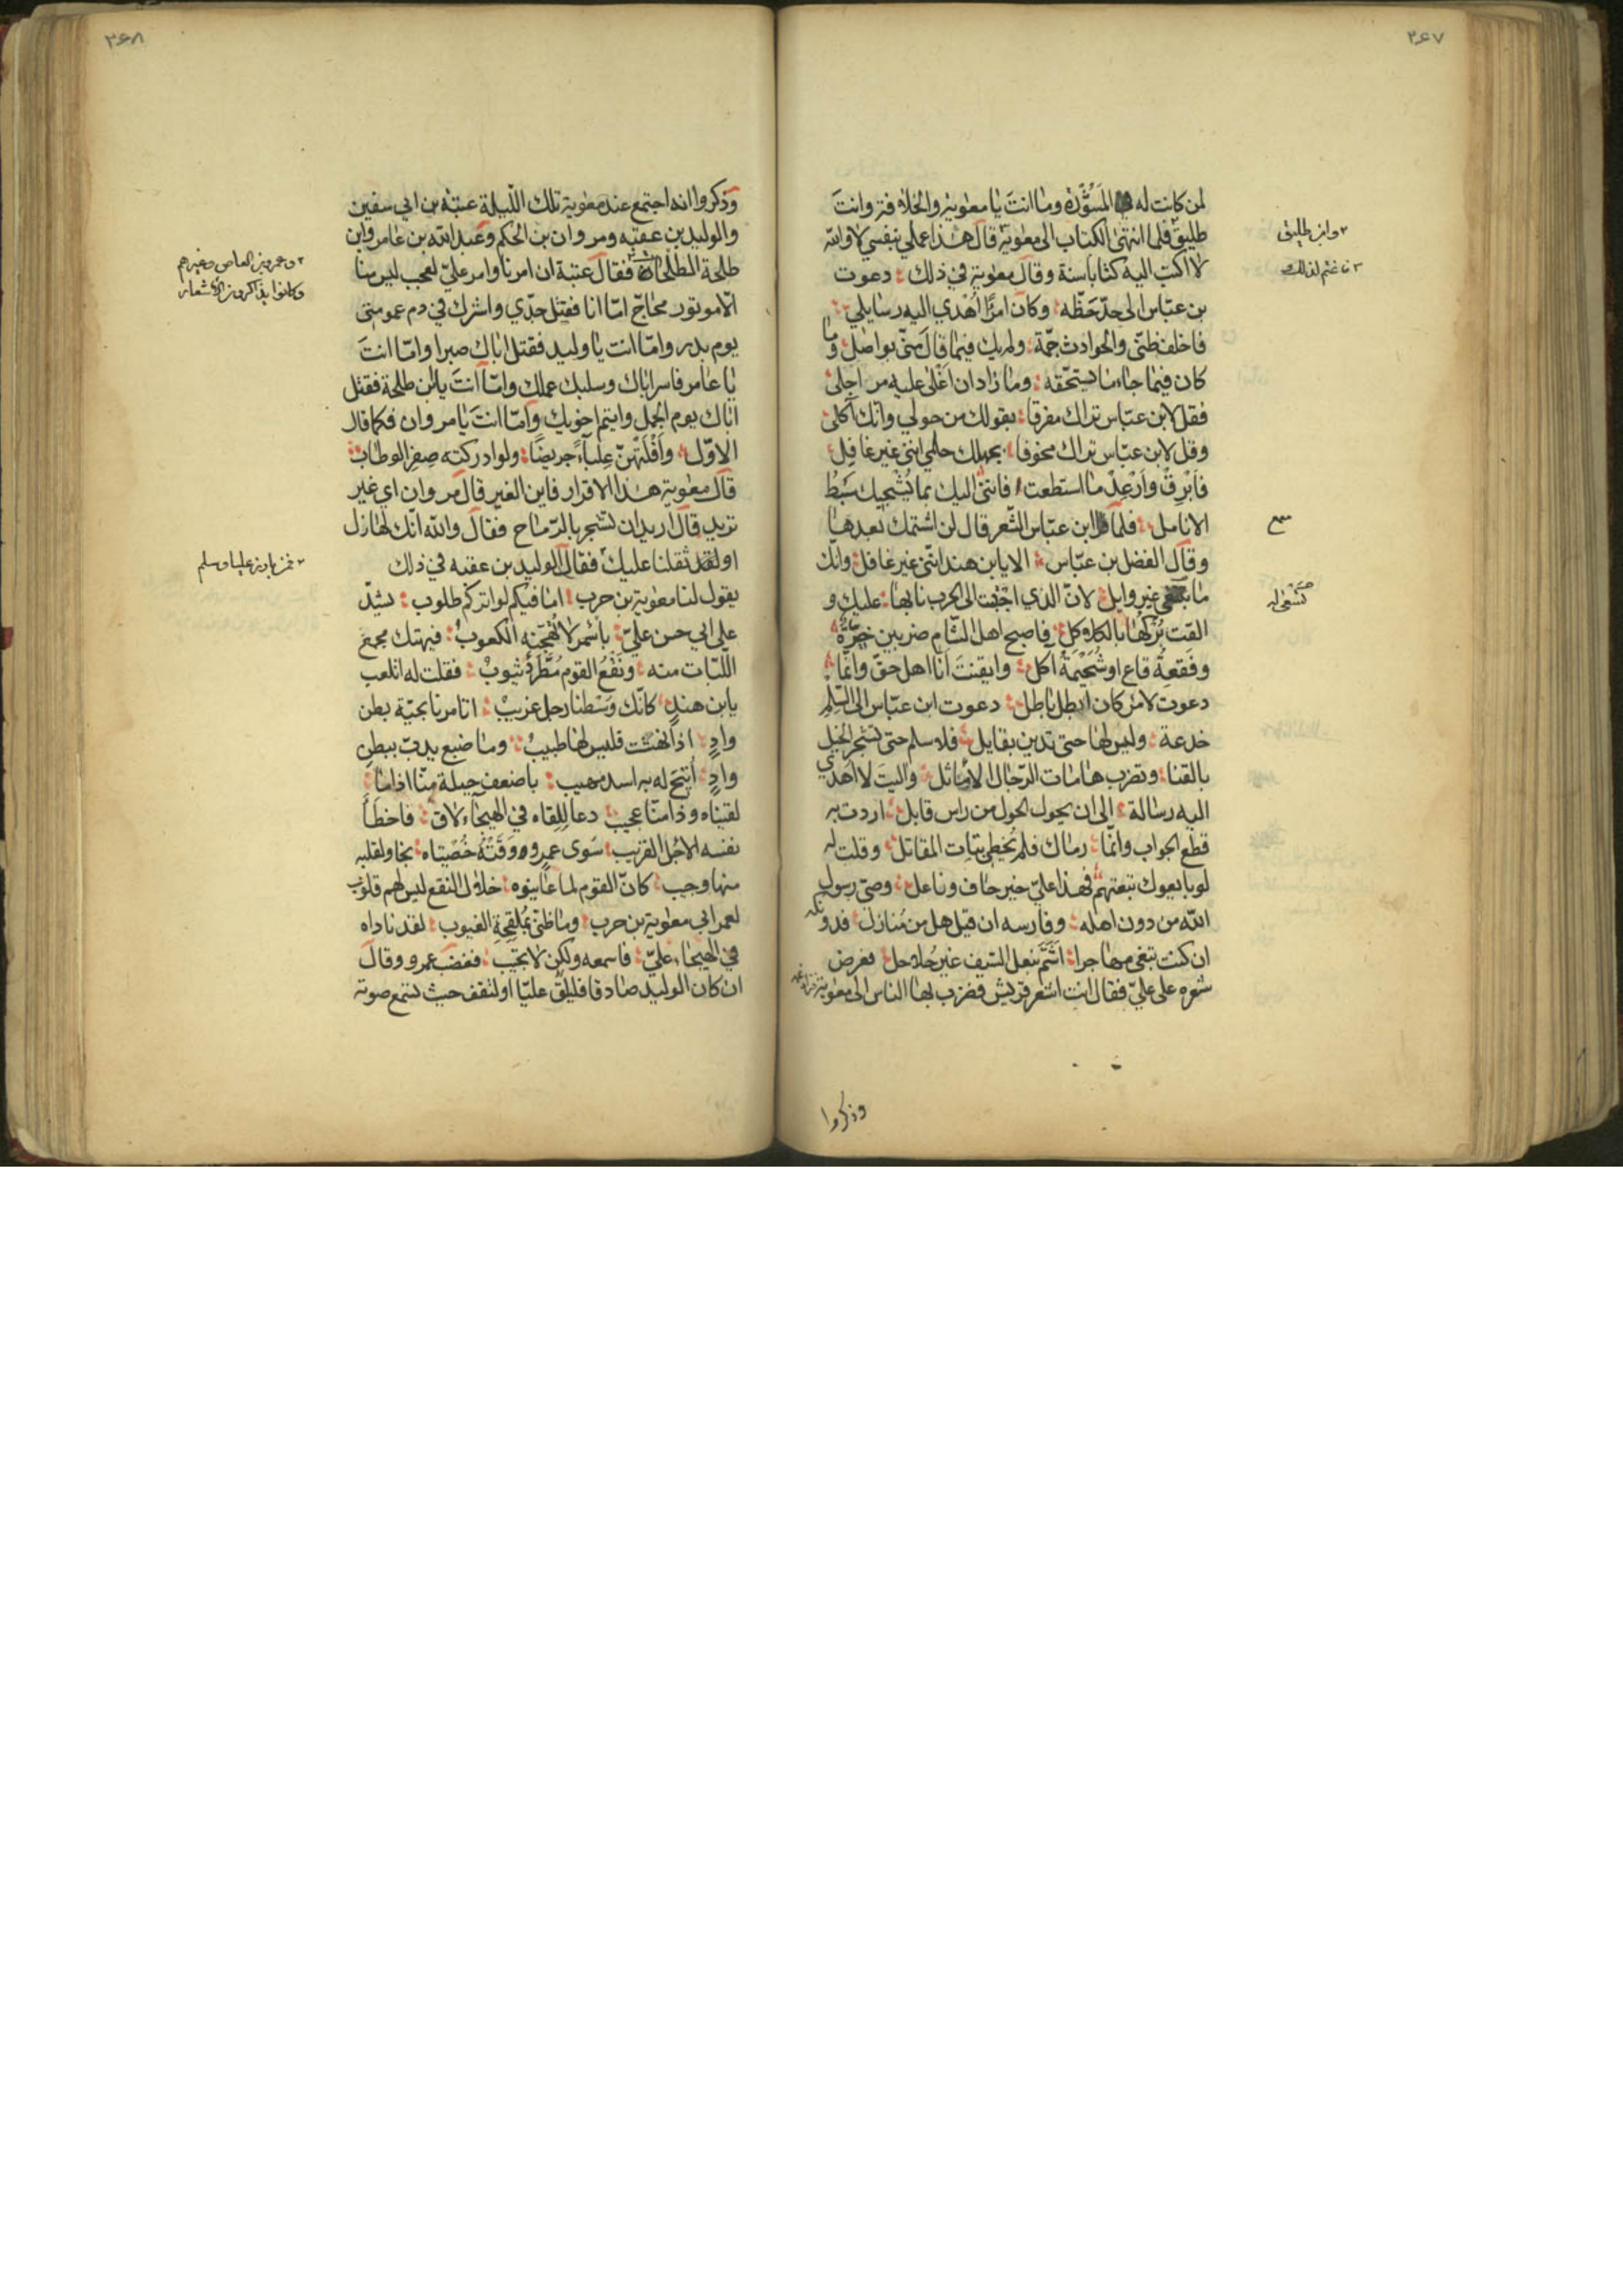 ٣٤٧
لمن كانت له المسوّدة وما انت يا معوية والخلافة وانت
طليق فلما انتهى الكتاب الى معوية قال هذا عملي بنفسي لا والله
لا اكتب اليه كتابا سنة وقال معوية في ذلك دعوت
بن عبّاس الى حدّ حظّه وكان امرًا اُهدي اليه رسايلي
فاخلف ظنّي والحوادث جمّة ولم يك فيما قال منّي بواصل وما
كان فيما جاء ما يستحقه وما زاد ان اغلى عليه مراجلي
فقل لابن عبّاس تراك مفرقا بقولك من حولي وانك آكلي
وقل لابن عبّاس تراك مخوفا بجهلك حلمي انني غير غافل
فاَبْرِقْ واَرْعِدْ ما استطعت فانني اليك بما يُشْجِيك سَبْطُ
الانامل فلما قرا ابن عبّاس الشّعر قال لن اشتمك بعدها
وقال الفضل بن عبّاس الا يابن هند انّني غير غافل وانّك
ما تسعى غير وايل لانّ الذي اجتبت الى الحرب نابها عليك و
القت بَرْكَها بالكلاكل فاصبح اهل الشّام ضربين خيرة
وفَقعةُ قاع او شُحَيْمَةُ آكل وايقنتَ انّا اهل حقّ وانّما
دعوت لامر كان ابطل باطل دعوت ابن عبّاس الى السِّلْم
خدعة وليس لها حتى تدين بقايل فلا سلم حتى تشجر الخيل
بالقنا وتضرب هامات الرّجال الاماثل واليتَ لا اهدي
اليه رسالة الى ان يحول الحول من راس قابل اردت به
قطع الجواب وانّما رماك فلم تُخطي بنات المقاتل وقلت له
لو بايعوك تبعتهم فهذا عليّ خير حاف وناعل وصيّ رسول
الله من دون اهله وفارسه ان قيل هل من مُنازل فدونكه
ان كنت تبغي مهاجرا اَشَمَّ بنعل السّيف غير حُلاحل فعرض
شعره على عليّ فقال انت اشعر قريش فضرب بها الناس الى معوية
وابن طليق
وذكروا
٣٤٨
وذكروا انه اجتمع عند معوية تلك اللّيلة عتبة بن ابي سفين
والوليد بن عقبه ومروان بن الحكم وعبد الله بن عامر وابن
طلحة الطلحات فقال عتبة ان امرنا وامر عليّ لعجب ليس منا
الّا موتور محاجّ امّا انا فقتل جدّي واشرك في دم عمومتي
يوم بدر وامّا انت يا وليد فقتل اباك صبرا وامّا انتَ
يا عامر فاسر اباك وسلبك عملك وامّا انتَ يابن طلحة فقتل
اباك يوم الجمل وايتم اخويك وامّا انتَ يا مروان فكما قال
الاوّل وأفْلَتَهُنّ عِلباءً جريضًا ولو ادركنه صِفِر الوطاب
قال معوية هذا الاقرار فاين الغير قال مروان اي غير
تريد قال اريد ان تشجر بالرّماح فقال والله انّك لهازل
او لقد ثقلنا عليك فقال الوليد بن عقبه في ذلك
يقول لنا معوية بن حرب اما فيكم لواتركم طلوب يشدّ
على ابي حسن عليّ باسمر لا تُهَجّنه الكعوبُ فيهتك مجمع
اللّبات منه ونَقْعُ القوم مُطَّرَدٌ يثوبْ فقلت له اتلعب
يابن هندٍ كانّك وسْطنا رجل غريبْ اتامرنا بحيّة بطن
وادٍ اذا نهشت فليس لها طبيبُ وما ضبع يدبّ ببطن
وادٍ أتيح له به اسد مهيب باضعف حيلة منّا اذا ما
لقيناه وذا منّا عجيب دعا لِلِقاه في الهيجاء لاقٍ فاخطأ
نفسه الاجل القريب سوى عمرو وَقَتْهُ خُصْيَتاه نجا ولقلبه
منها وجيب كانّ القوم لما عاينوه خلال النقع ليس لهم قلوب
لعمر ابي معوية بن حرب وما ظنّي بمُلقِحةِ العيوب لقد ناداه
في الهيجاء عليّ فاسمعه ولكن لا يجيب فغضب عمرو وقال
ان كان الوليد صادقا فليلق عليّا او ليقف حيث يسمع صوته
وعمرو بن العاص وغيرهم